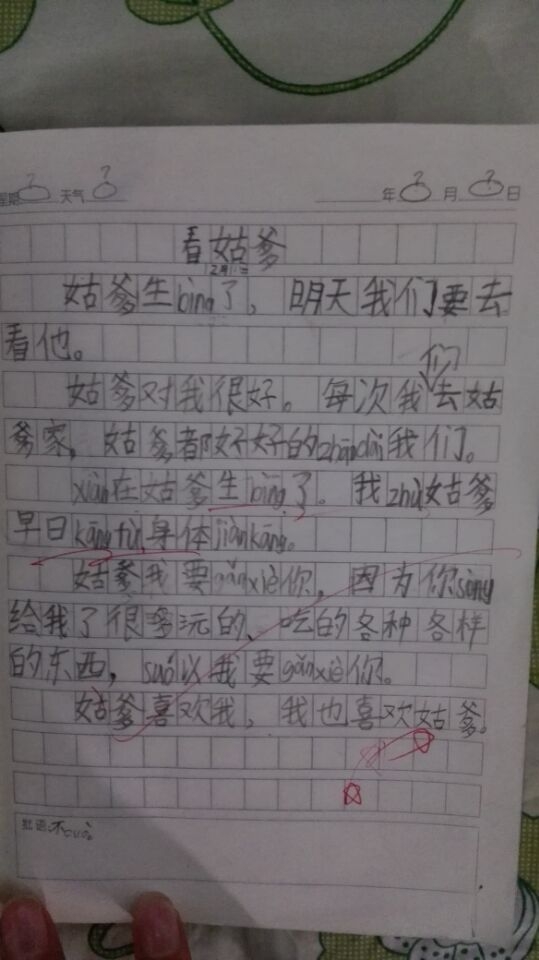 星期 天气 年 月 日
看姑爹
姑爹生bìng了，明天我们要去
看他。
姑爹对我很好。每次我们去姑
爹家，姑爹都好好的zhāodài我们。
xiàn在姑爹生bìng了。我zhù姑爹
早日kāngfù，身体jiànkāng。
姑爹我要gǎnxiè你，因为你sòng
给我了很多玩的、吃的各种各样
的东西，suǒ以我要gǎnxiè你。
姑爹喜欢我，我也喜欢姑爹。
批语：不cuò